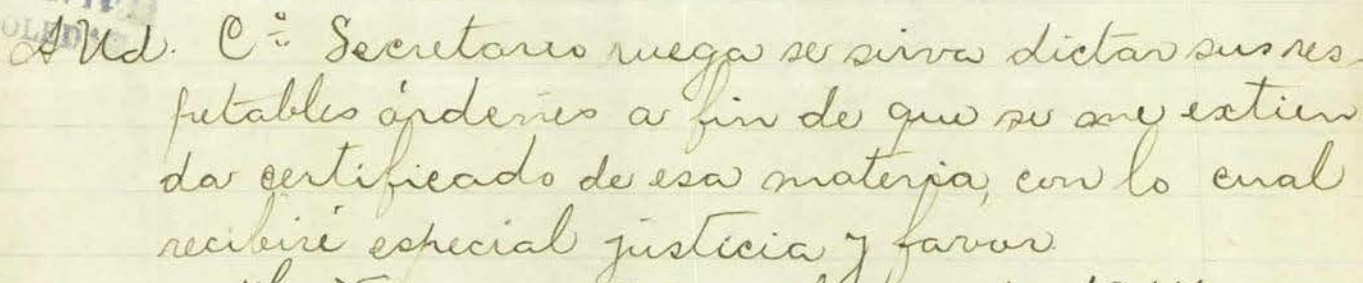 A Ud. C.º Secretario ruega se sirva dictar sus res-
petables órdenes a fin de que se me extien
da certificado de esa materia, con lo cual
recibiré especial justicia y favor